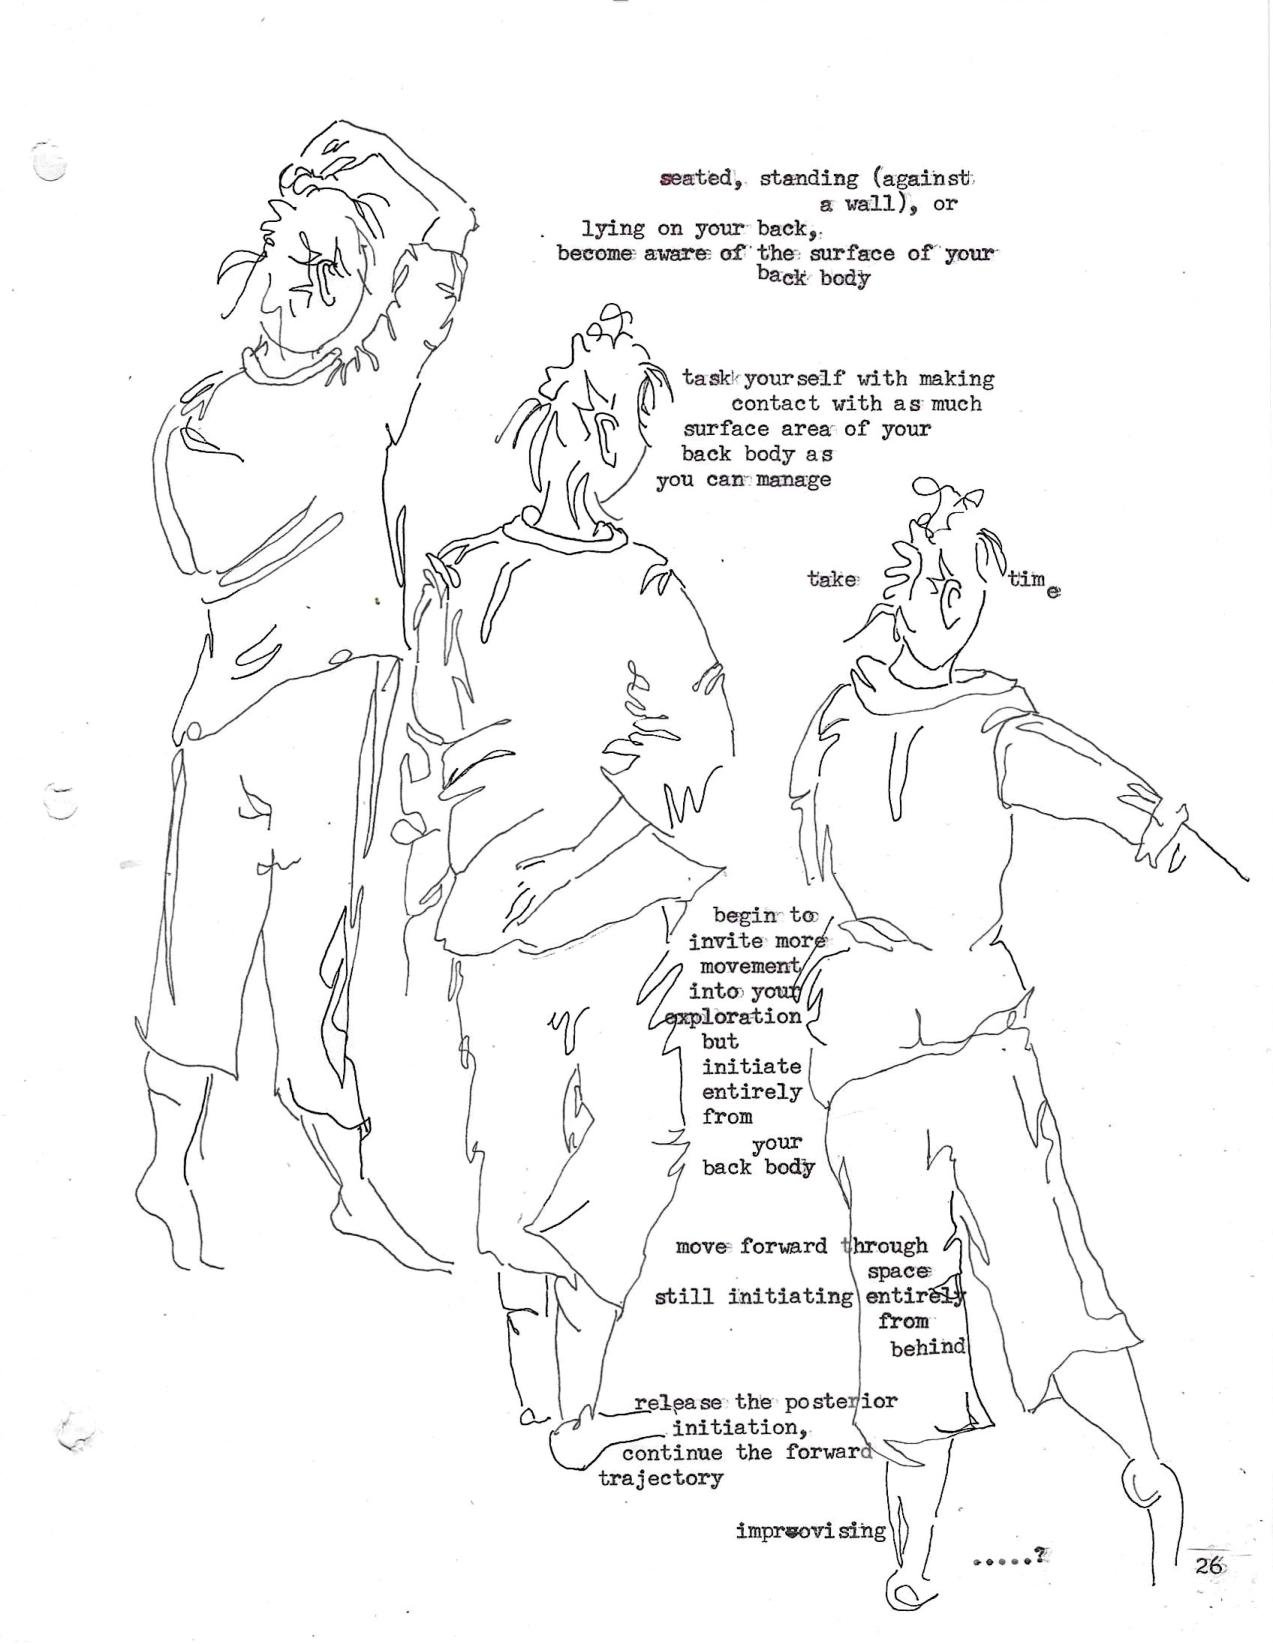 seated, standing (against
a wall), or
lying on your back,
become aware of the surface of your
back body
task yourself with making
contact with as much
surface area of your
back body as
you can manage
take time
begin to
invite more
movement
into your
exploration
but
initiate
entirely
from
your
back body
move forward through
space
still initiating entirely
from
behind
release the posterior
initiation,
continue the forward
trajectory
improvising
.....?
26